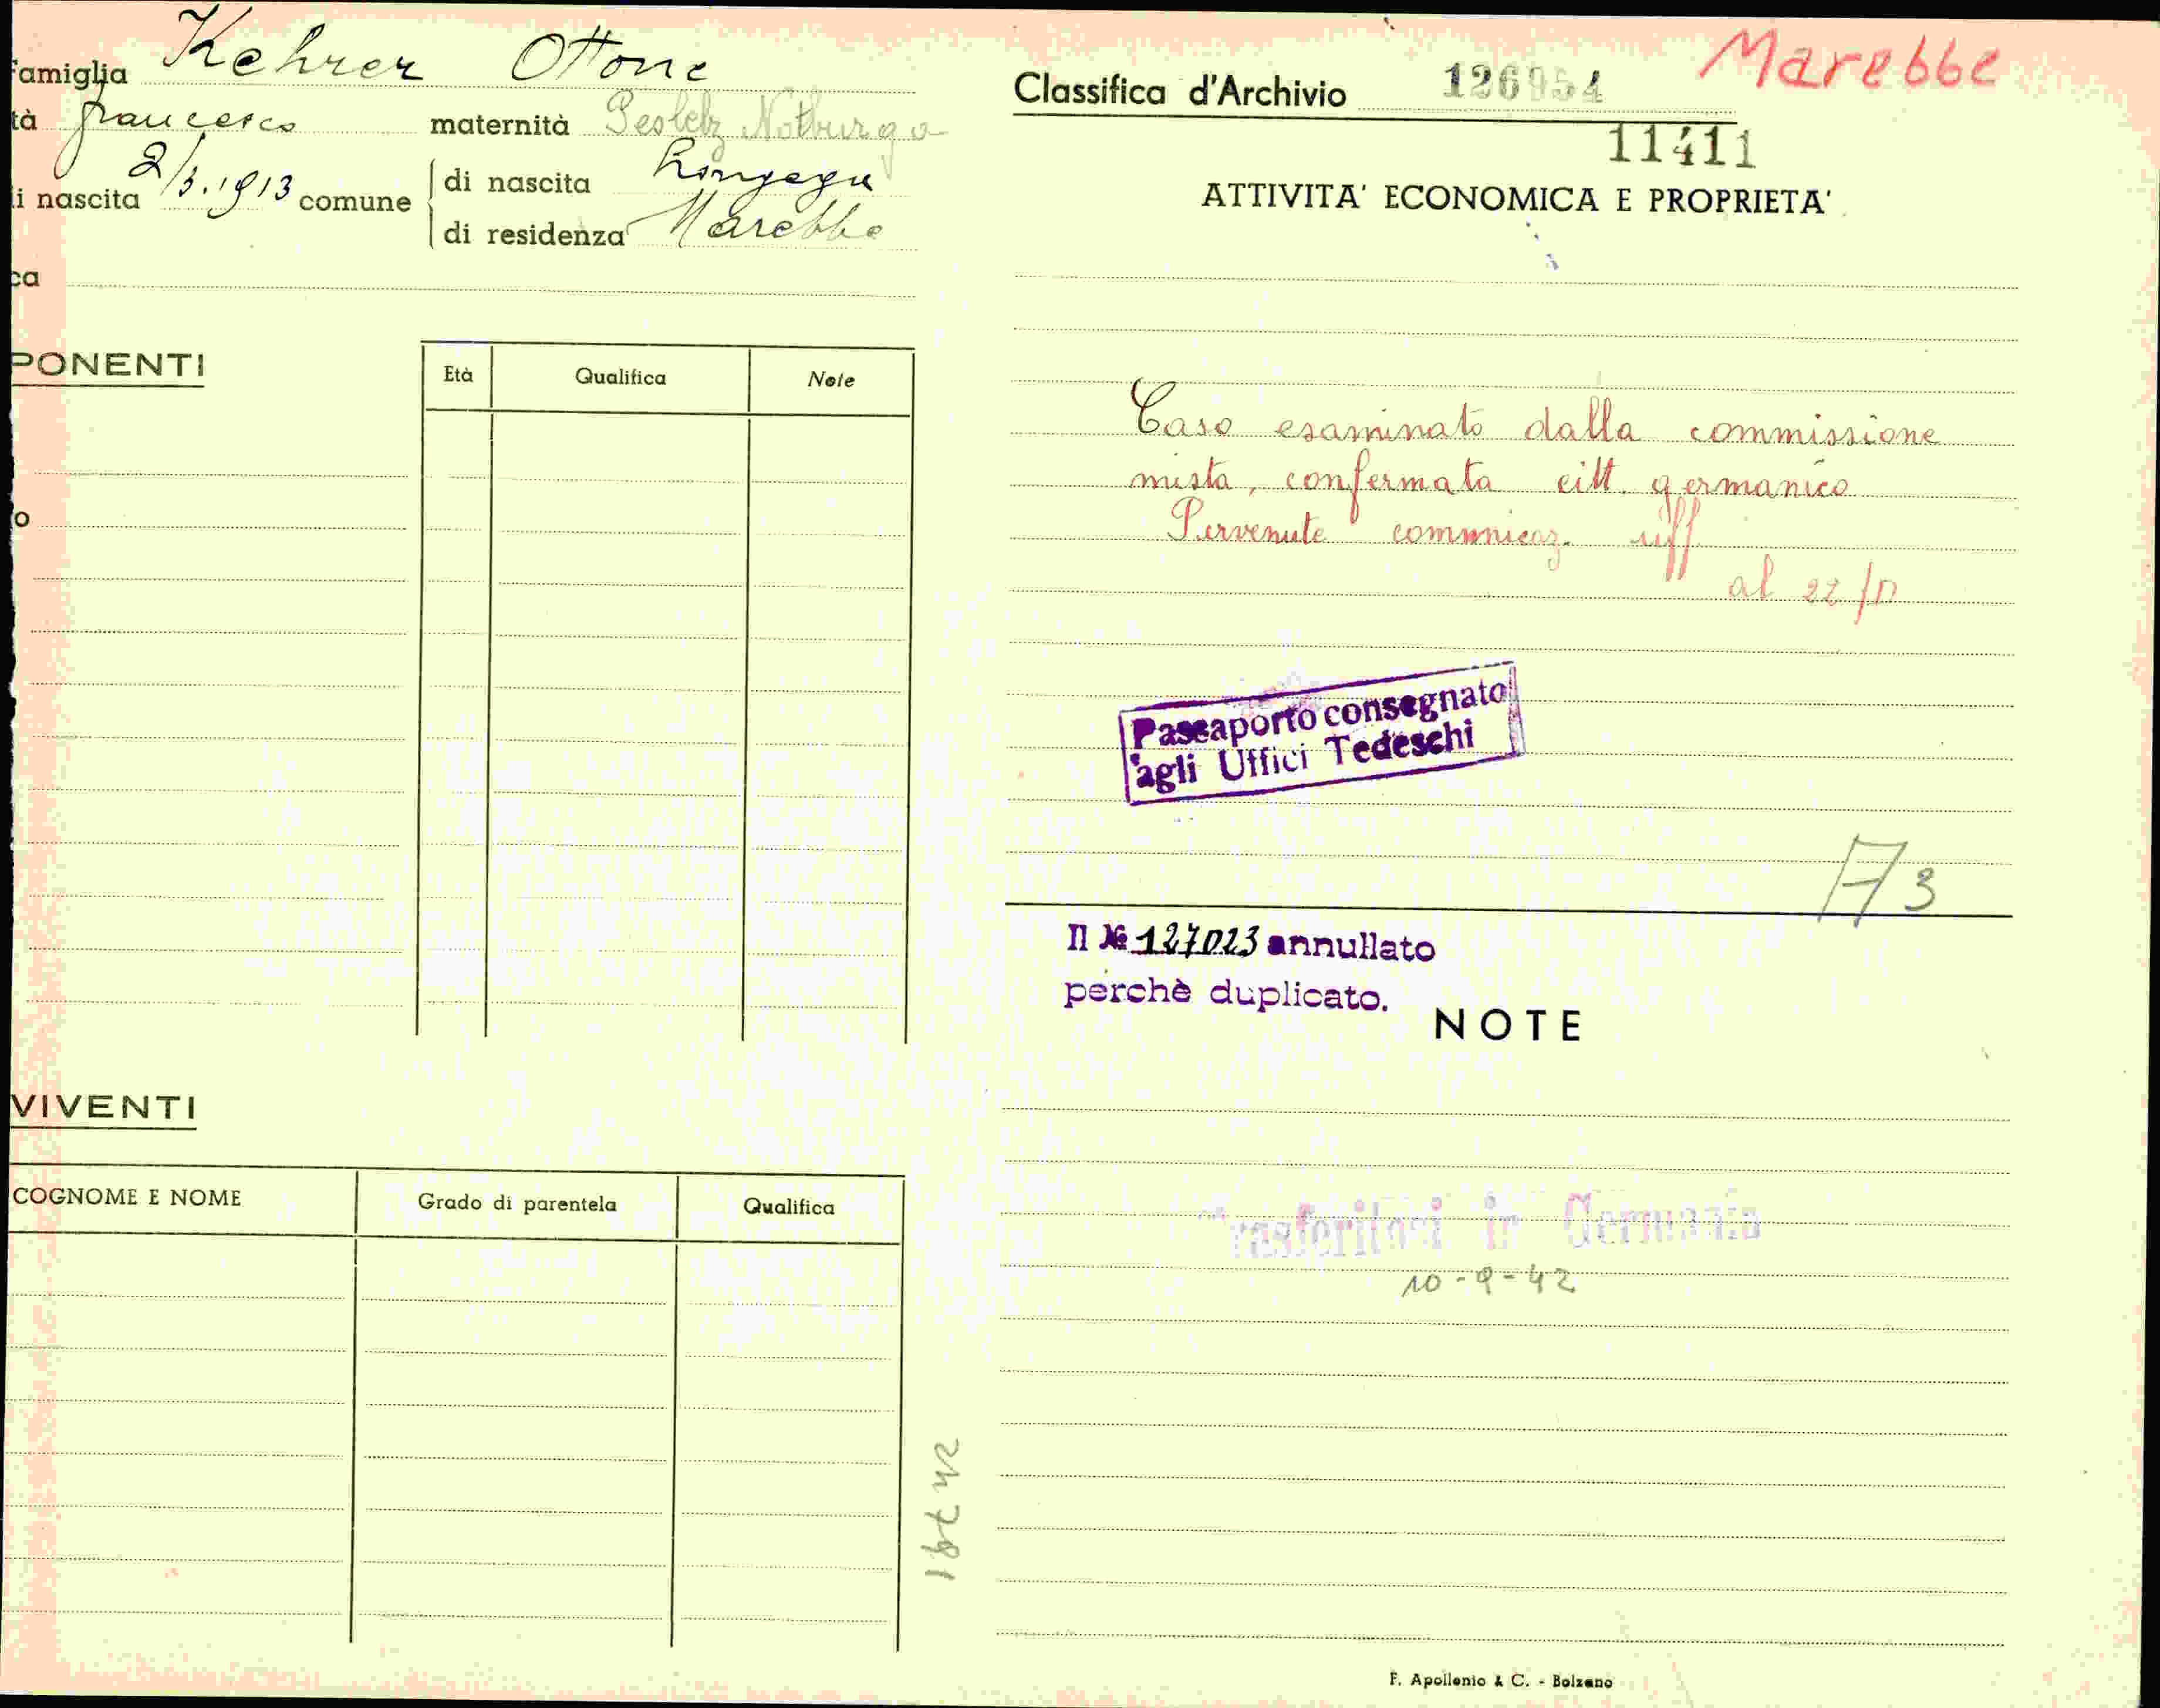 famiglia Kehrer Ottone
tà Francesco maternità Notburga
i nascita 2/3.1913 comune
di nascita Longega
di residenza Marebbe
ca
PONENTI
Età Qualifica Note
o
VIVENTI
COGNOME E NOME Grado di parentela Qualifica
Marebbe
Classifica d'Archivio 126954
11411
ATTIVITA' ECONOMICA E PROPRIETA'
Caso esaminato dalla commissione
mista, confermata citt. germanico
Pervenute comunicaz. uff
al 22/
Passaporto consegnato
agli Uffici Tedeschi
A 3
Il № 127023 annullato
perchè duplicato.
NOTE
Trasferitosi in Germania
10-9-42
F. Apollonio & C. - Bolzano